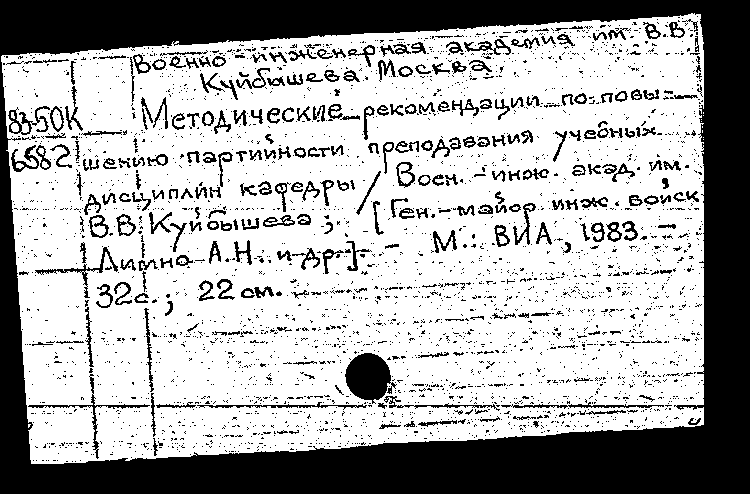 Военно-инженерная академия им. В.В.
Куйбышева. Москва.
83-50К Методические рекомендации по повы-
6582 шению партийности преподавания учебных
дисциплин кафедры / Воен.-инж. акад. им.
В.В. Куйбышева; [Ген.-майор инж. войск
А.Н. и др.]. - М.: ВИА, 1983. -
32 с.; 22 см.